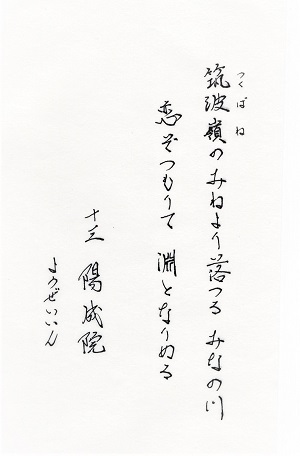 つくばね
筑波嶺のみねより落つる みなの川
恋ぞつもりて 淵となりぬる
十三 陽成院
ようぜいいん